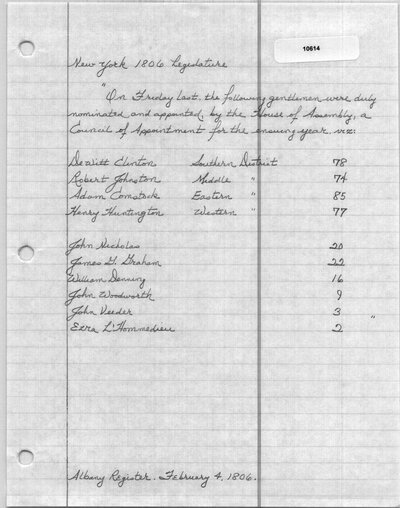 10614
New York 1806 Legislature
"On Friday last, the following gentlemen were duly
nominated and appointed, by the House of Assembly, a
Council of Appointment for the ensuing year, viz:
DeWitt Clinton Southern District 78
Robert Johnston Middle " 74
Adam Comstock Eastern " 85
Henry Huntington Western " 77
John Nicholas 20
James G. Graham 22
William Denning 16
John Woodworth 9
John Veeder 3 "
Ezra L'Hommedieu 2
Albany Register. February 4, 1806.